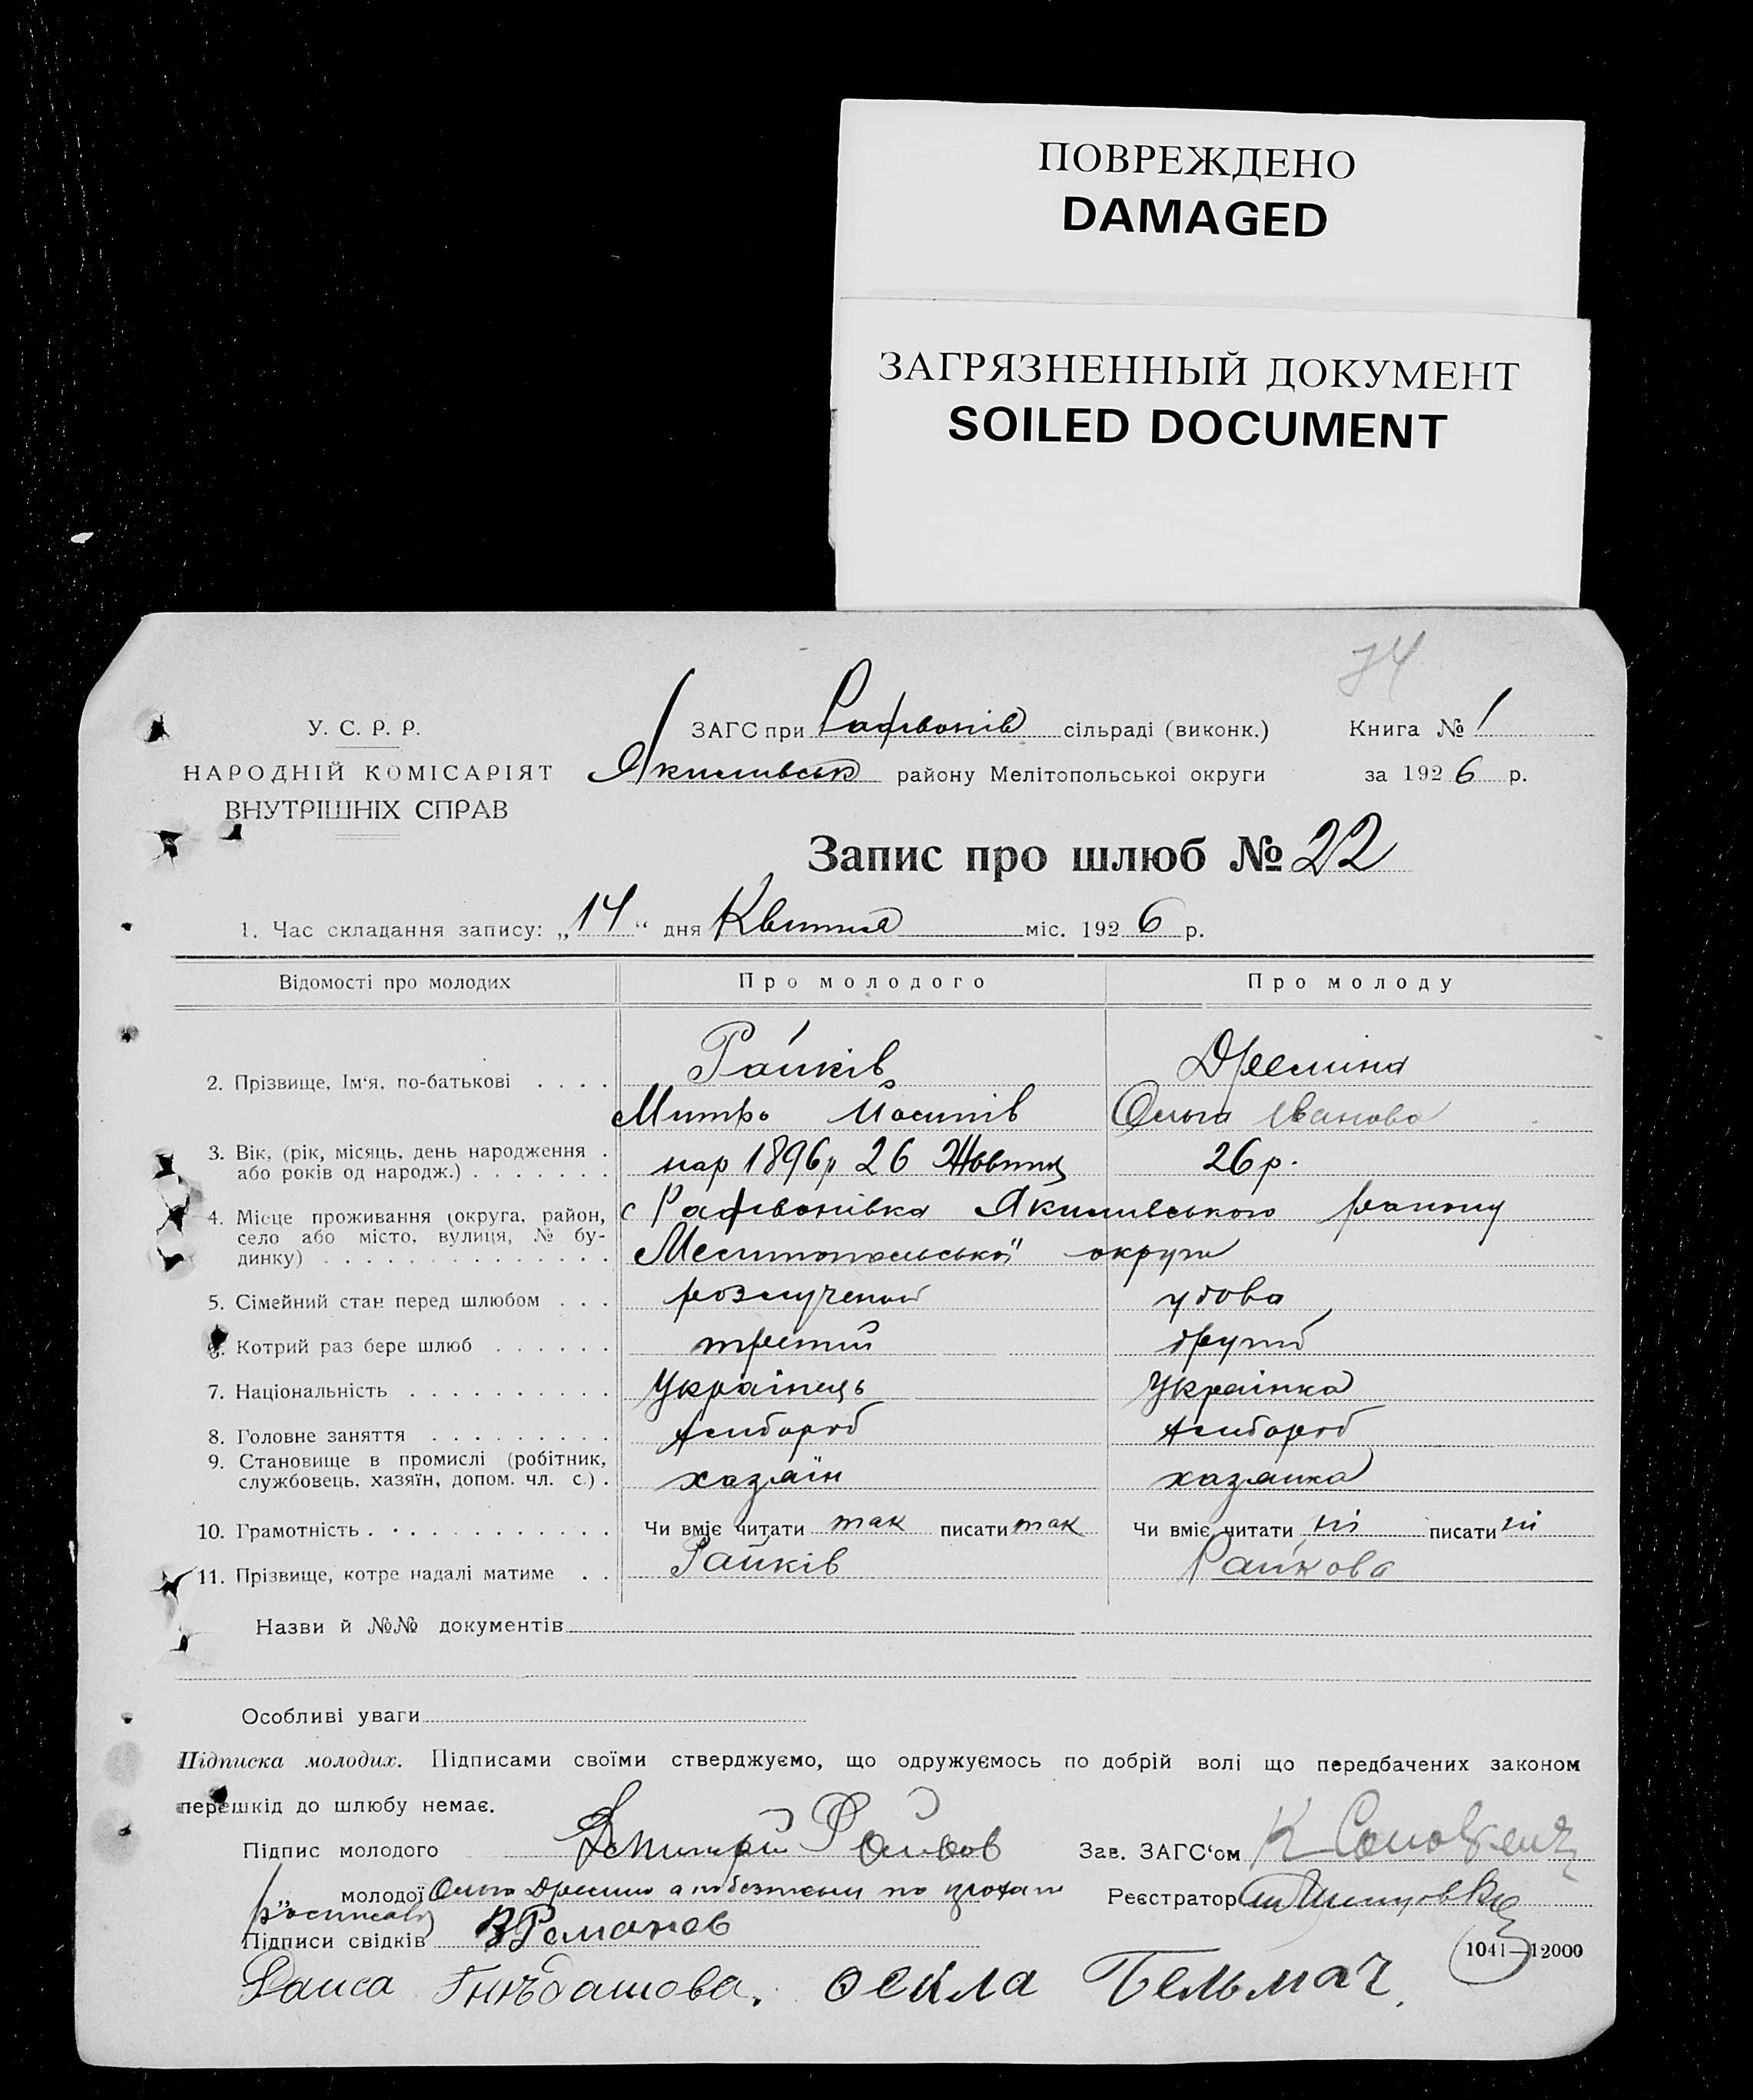 ПОВРЕЖДЕНО
DAMAGED
ЗАГРЯЗНЕННЫЙ ДОКУМЕНТ
SOILED DOCUMENT
74
У. С. Р. Р.
НАРОДНІЙ КОМІСАРІЯТ
ВНУТРІШНІХ СПРАВ
ЗАГС при Радівонів сільраді (виконк.) Книга № 1
Якимівськ району Мелітопольськоі округи за 1926 р.
Запис про шлюб № 22
1. Час складання запису: „14“ дня Квітня міс. 1926 р.
Відомості про молодих Про молодого Про молоду
2. Прізвище, Ім‘я, по-батькові Райків
Митро Йосипів Ольга Іванова
3. Вік, (рік, місяць, день народження або років од народж.) нар 1896р 26 Жовтня 26 р.
4. Місце проживання (округа, район, село або місто, вулиця, № будинку) с Радівонівка Якимівського району
Мелітопольськоï округи
5. Сімейний стан перед шлюбом розлучений удова
6. Котрий раз бере шлюб третій другий
7. Національність Українець Українка
8. Головне заняття хлібороб хлібороб
9. Становище в промислі (робітник, службовець, хазяїн, допом. чл. с.) хазяïн хазяйка
10. Грамотність Чи вміє читати так писати так Чи вміє читати ні писати ні
11. Прізвище, котре надалі матиме Райків Райкова
Назви й №№ документів
Особливі уваги
Підписка молодих. Підписами своїми стверджуємо, що одружуємось по добрій волі що передбачених законом
перешкід до шлюбу немає.
Підпис молодого Дмитрий Райков Зав. ЗАГС‘ом К
„ молодої Ольга Реєстратор
росписався
Підписи свідків В Романов
1041—12000
Раиса Бельмач.